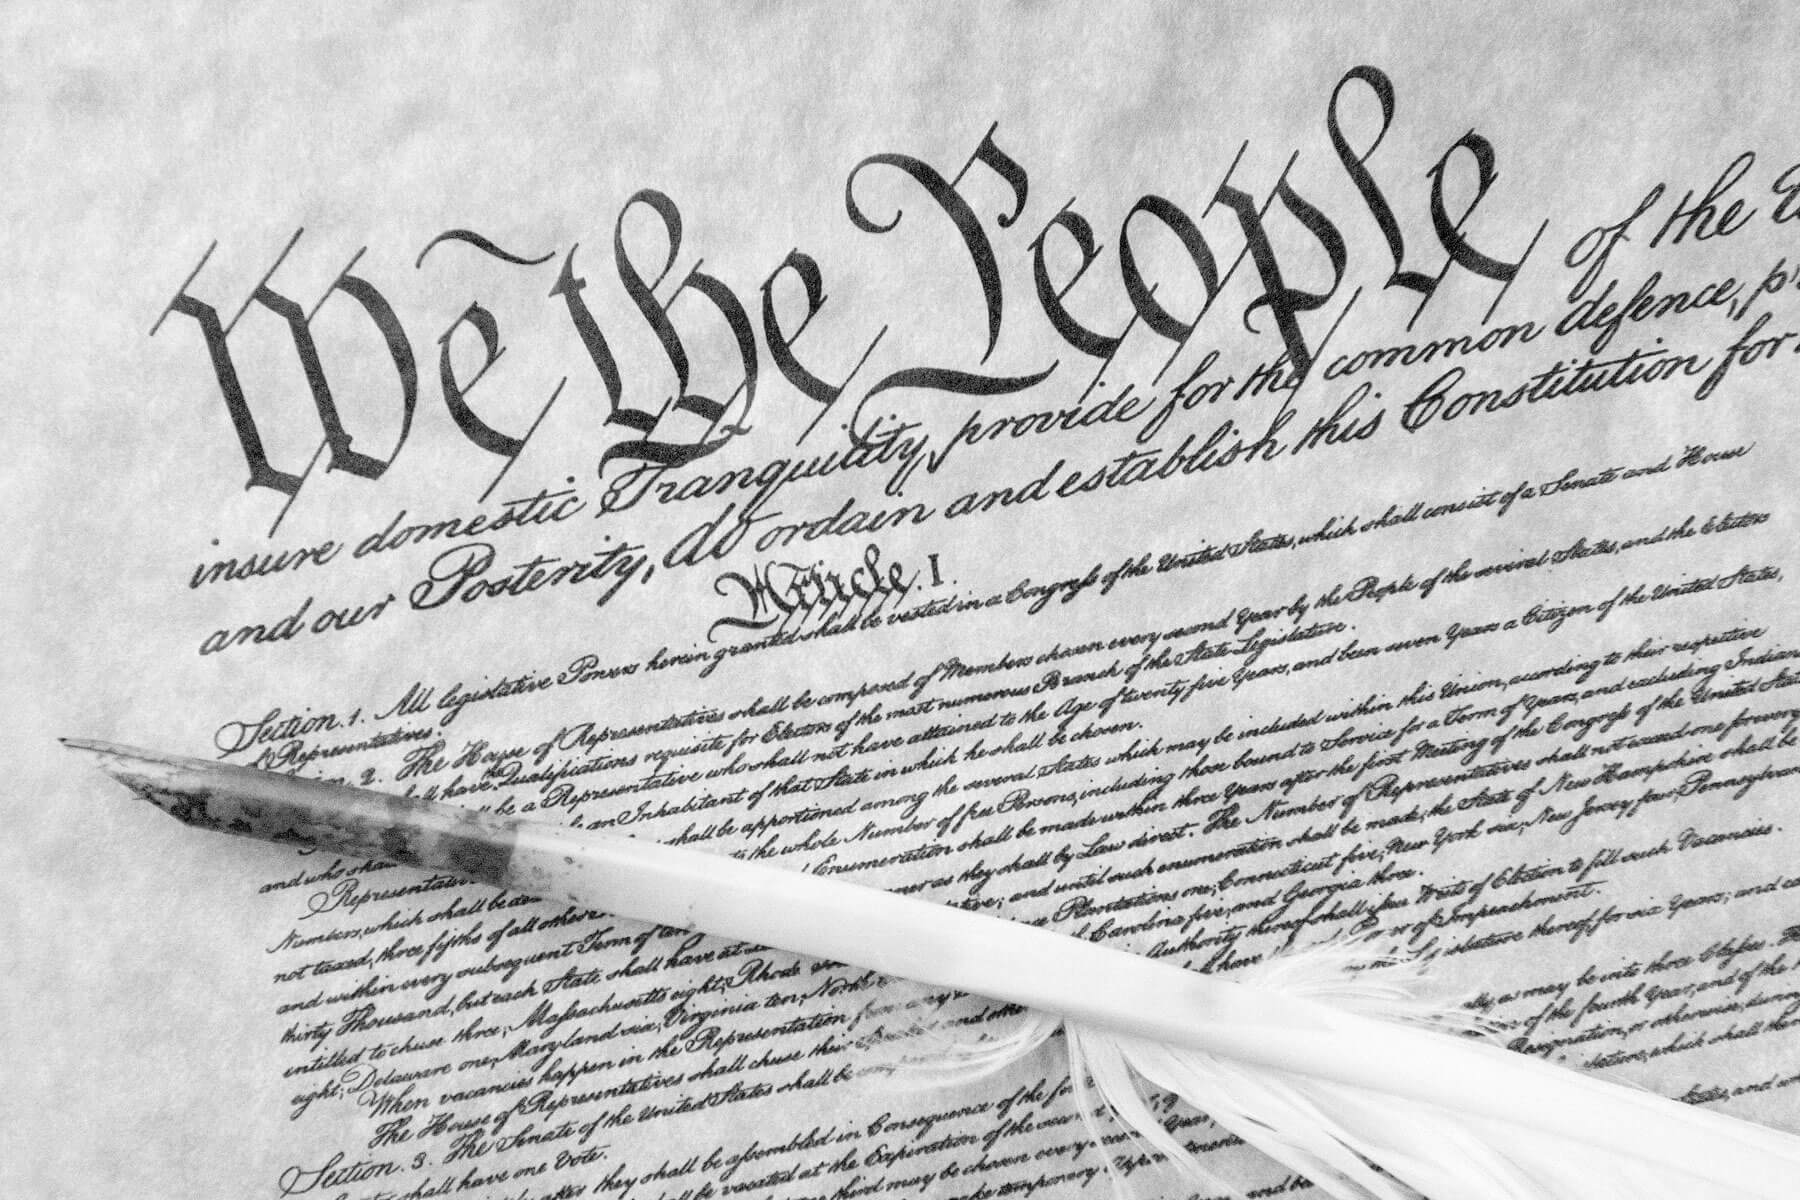 We the People of the
insure domestic Tranquility, provide for the common defence,
and our Posterity, do ordain and establish this Constitution for
Article. I.
Section. 1. All legislative Powers herein granted shall be vested in a Congress of the United States, which shall consist of a Senate and House
of Representatives.
2. The House of Representatives shall be composed of Members chosen every second Year by the People of the several States, and the Electors
have the Qualifications requisite for Electors of the most numerous Branch of the State Legislature.
be a Representative who shall not have attained to the Age of twenty five Years, and been seven Years a Citizen of the United States,
and who an Inhabitant of that State in which he shall be chosen.
Representatives shall be apportioned among the several States which may be included within this Union, according to their respective
Numbers, which shall be the whole Number of free Persons, including those bound to Service for a Term of Years, and excluding Indians
not taxed, three fifths of all other Enumeration shall be made within three Years after the first Meeting of the Congress of the United
and within every subsequent Term of ten as they shall by Law direct. The Number of Representatives shall not exceed one for every
thirty Thousand, but each State shall have at and until such enumeration shall be made, the State of New Hampshire shall be
entitled to chuse three, Massachusetts eight, Rhode Plantations one, Connecticut five, New York six, New Jersey four,
eight, Delaware one, Maryland six, Virginia ten, North Carolina five, and Georgia three.
When vacancies happen in the Representation from any Authority thereof shall issue Writs of Election to fill such Vacancies.
The House of Representatives shall chuse their and other have of Impeachment.
Section. 3. The Senate of the United States shall be Legislature thereof, for six Years; and
shall have one Vote.
after they shall be assembled in Consequence of the may be into three Classes.
be vacated at the Expiration of the of the fourth Year, and of the
third may be chosen every Year, Resignation, or otherwise, during
make temporary which shall